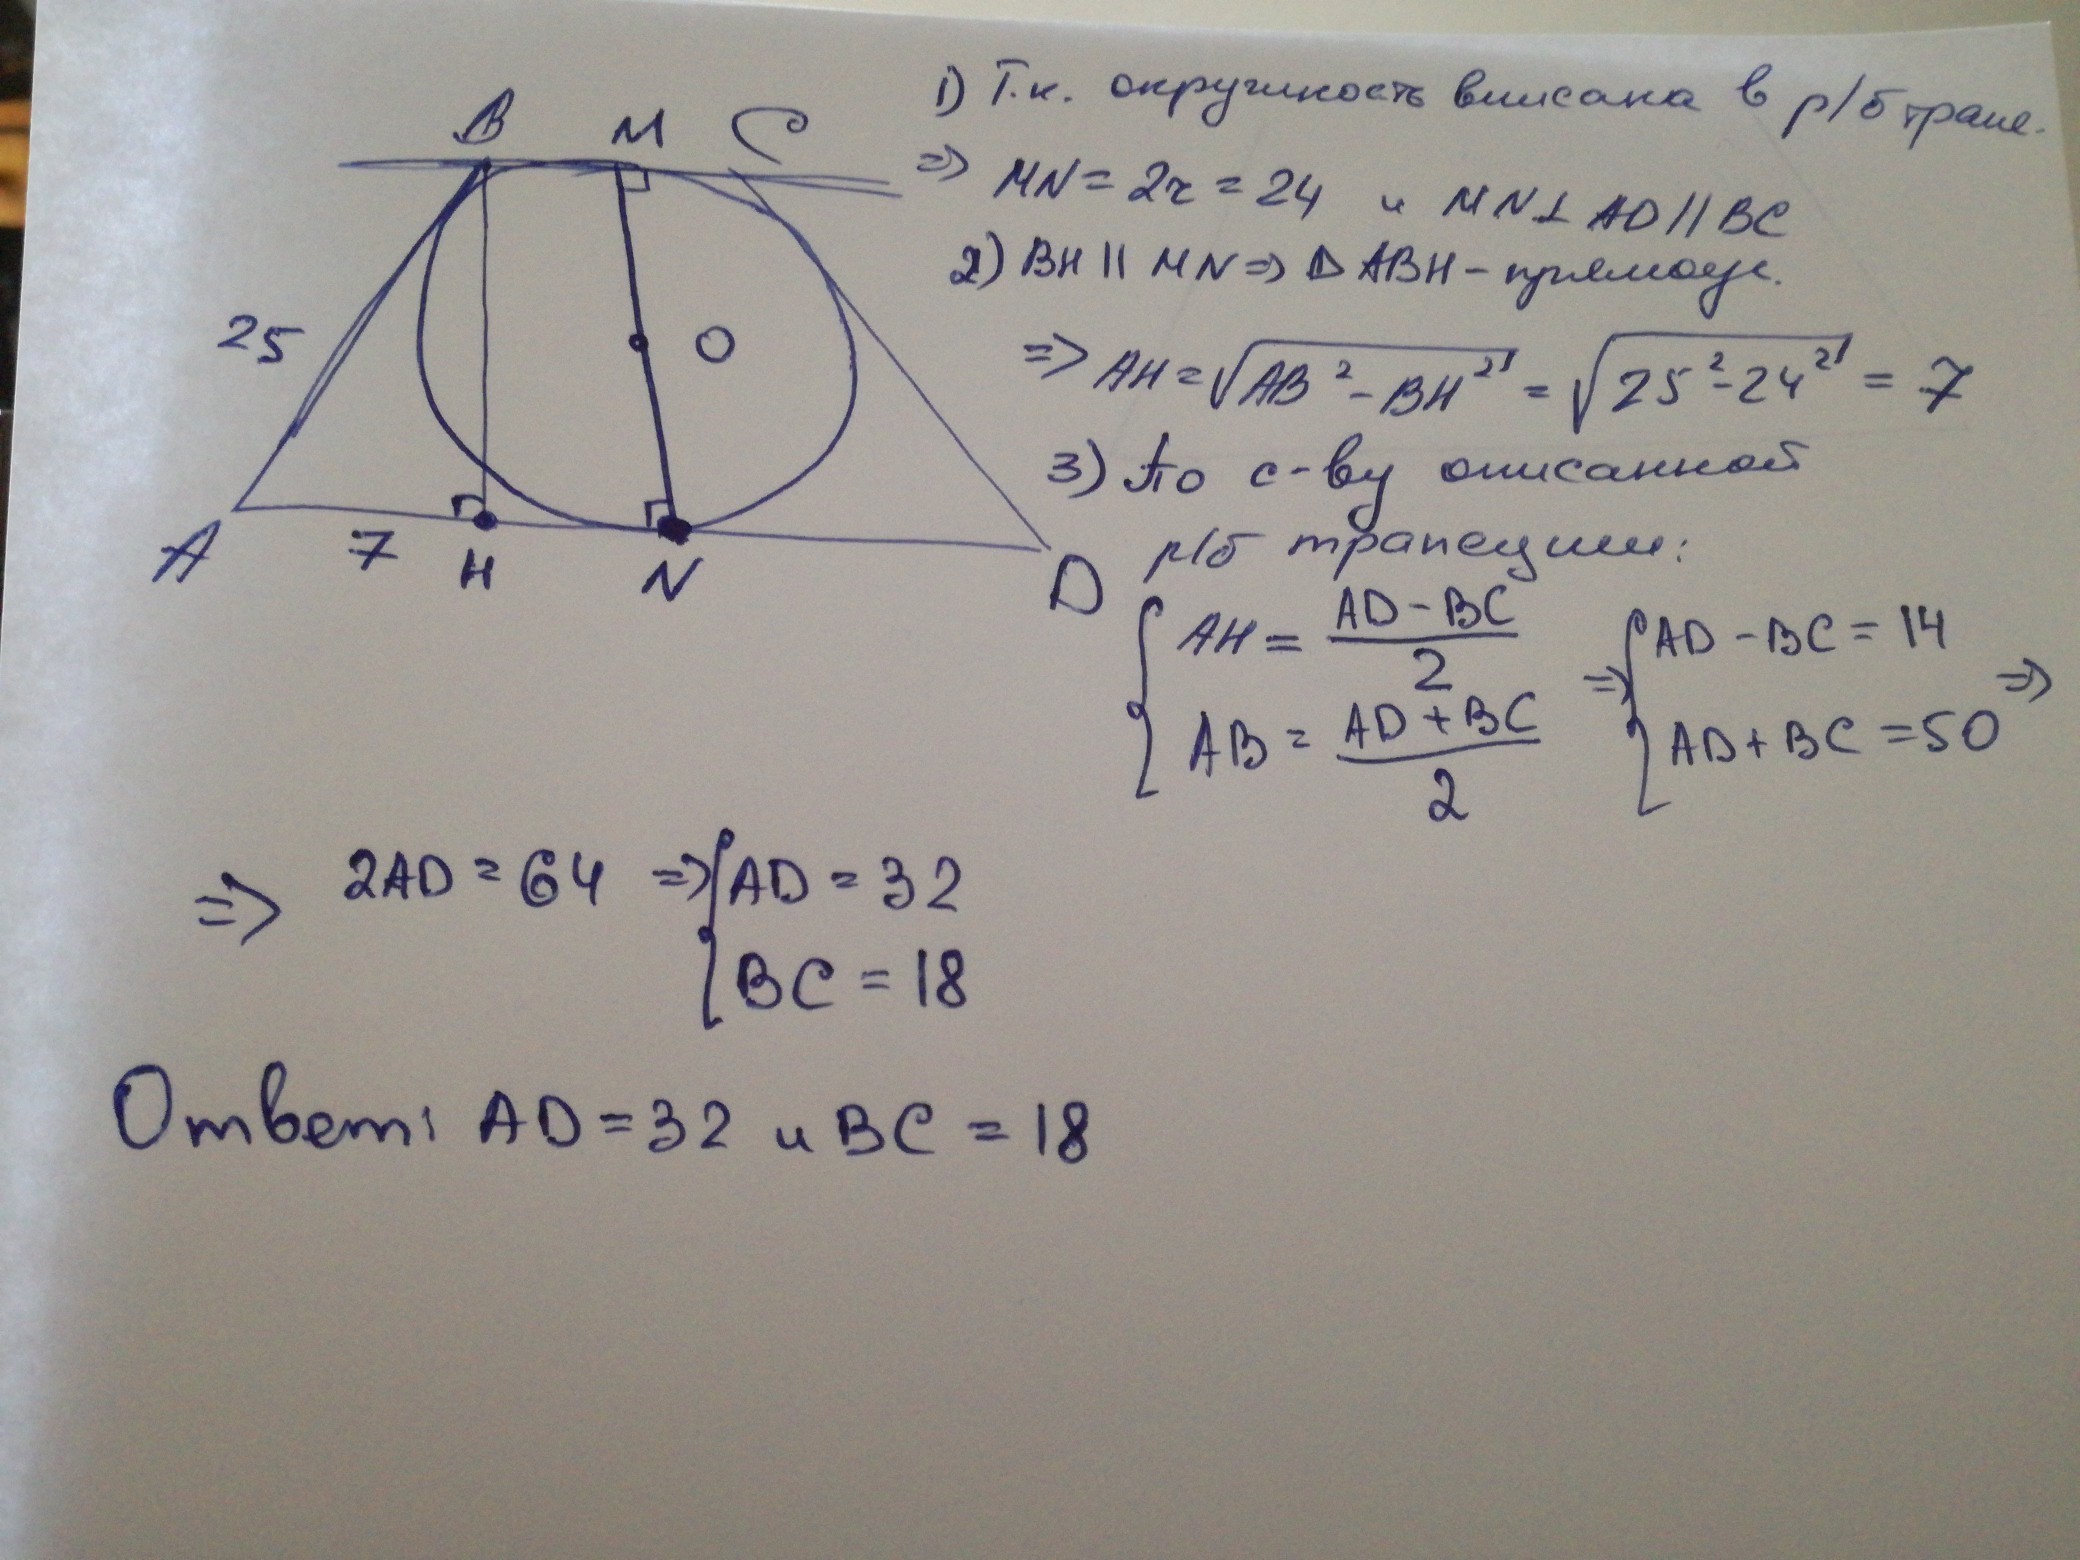 B M C
25
O
A 7 H N D
1) Т.к. окружность вписана в р/б трапе.
=> MN = 2r = 24 и MN ⊥ AD || BC
2) BH || MN => Δ ABH - прямоуг.
=> AH = √(AB² - BH²) = √(25² - 24²) = 7
3) По с-ву описанной
р/б трапеции:
{ AH = (AD - BC)/2 => { AD - BC = 14
{ AB = (AD + BC)/2 { AD + BC = 50 =>
=> 2AD = 64 => { AD = 32
{ BC = 18
Ответ: AD = 32 и BC = 18